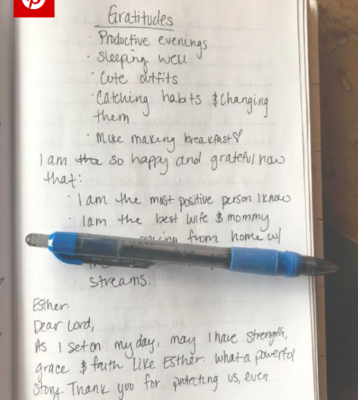 Gratitudes
· Productive evenings
· Sleeping well
· Cute outfits
· Catching habits & changing
them
· Mike making breakfast
I am the so happy and grateful now
that:
· I am the most positive person I know
· I am the best wife & mommy
from home w/
streams.
Esther.
Dear Lord,
As I set on my day, may I have strength,
grace & faith like Esther. What a powerful
story. Thank you for protecting us, even